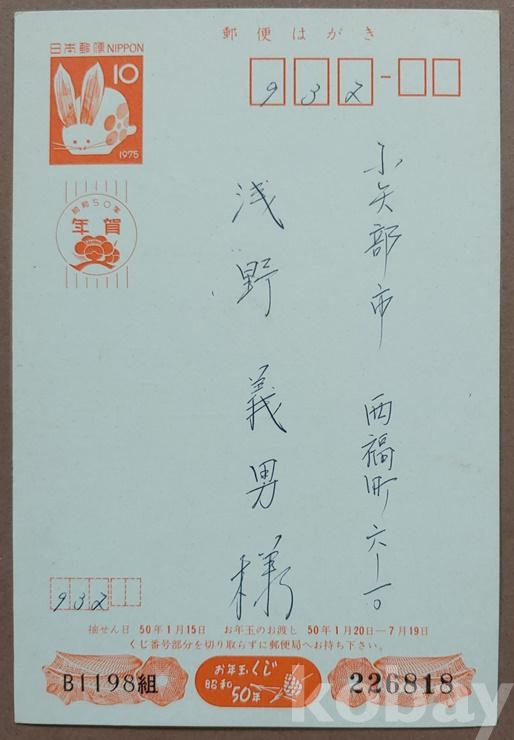 郵便はがき
日本郵便 NIPPON
10
1975
昭和50年
年賀
932-
小矢部市 西福町六-一〇
浅野義男様
932
抽せん日 50年1月15日 お年玉のお渡し 50年1月20日―7月19日
くじ番号部分を切り取らずに郵便局へお持ち下さい。
B1198組
お年玉くじ
昭和50年
226818
kobay